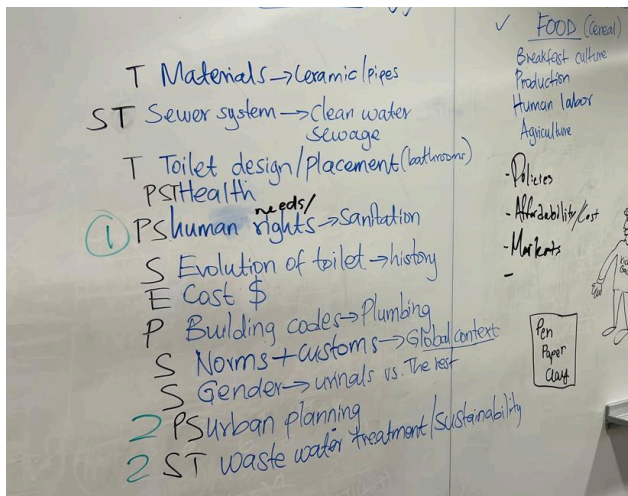 T Materials→Ceramic/pipes
ST Sewer system→Clean water
sewage
T Toilet design/placement (bathrooms)
PST Health
needs/
1 PS human rights→Sanitation
S Evolution of toilet→history
E Cost $
P Building codes→Plumbing
S Norms+customs→Global context
S Gender→urinals vs. The rest
2 PS urban planning
2 ST waste water treatment/sustainability
✓ FOOD (cereal)
Breakfast culture
Production
Human labor
Agriculture
-Policies
-Affordability/Cost
-Markets
-
Pen
Paper
Clay